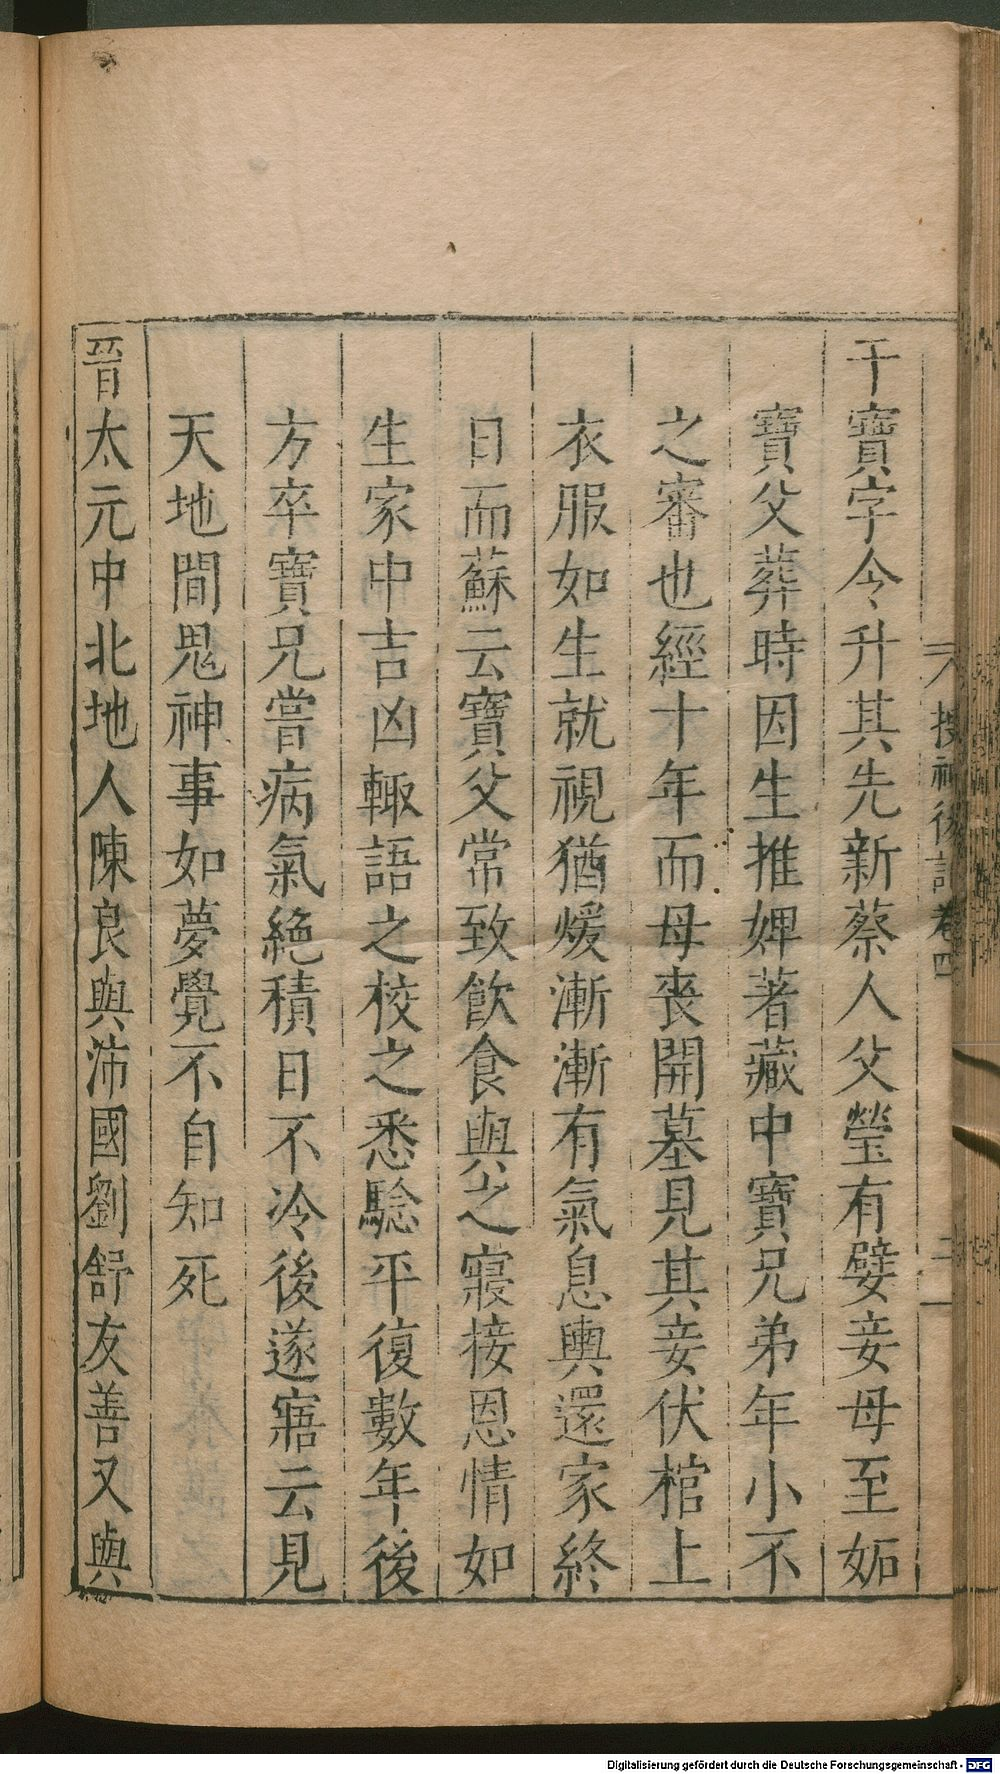 搜神後記 卷四 二
干寶字令升其先新蔡人父瑩有嬖妾母至妬
寶父葬時因生推婢著藏中寶兄弟年小不
之審也經十年而母喪開墓見其妾伏棺上
衣服如生就視猶煖漸漸有氣息輿還家終
日而蘇云寶父常致飲食與之寢接恩情如
生家中吉凶輙語之校之悉驗平復數年後
方卒寶兄嘗病氣絶積日不冷後遂寤云見
天地間鬼神事如夢覺不自知死
晉太元中北地人陳良與沛國劉舒友善又與
Digitalisierung gefördert durch die Deutsche Forschungsgemeinschaft - DFG